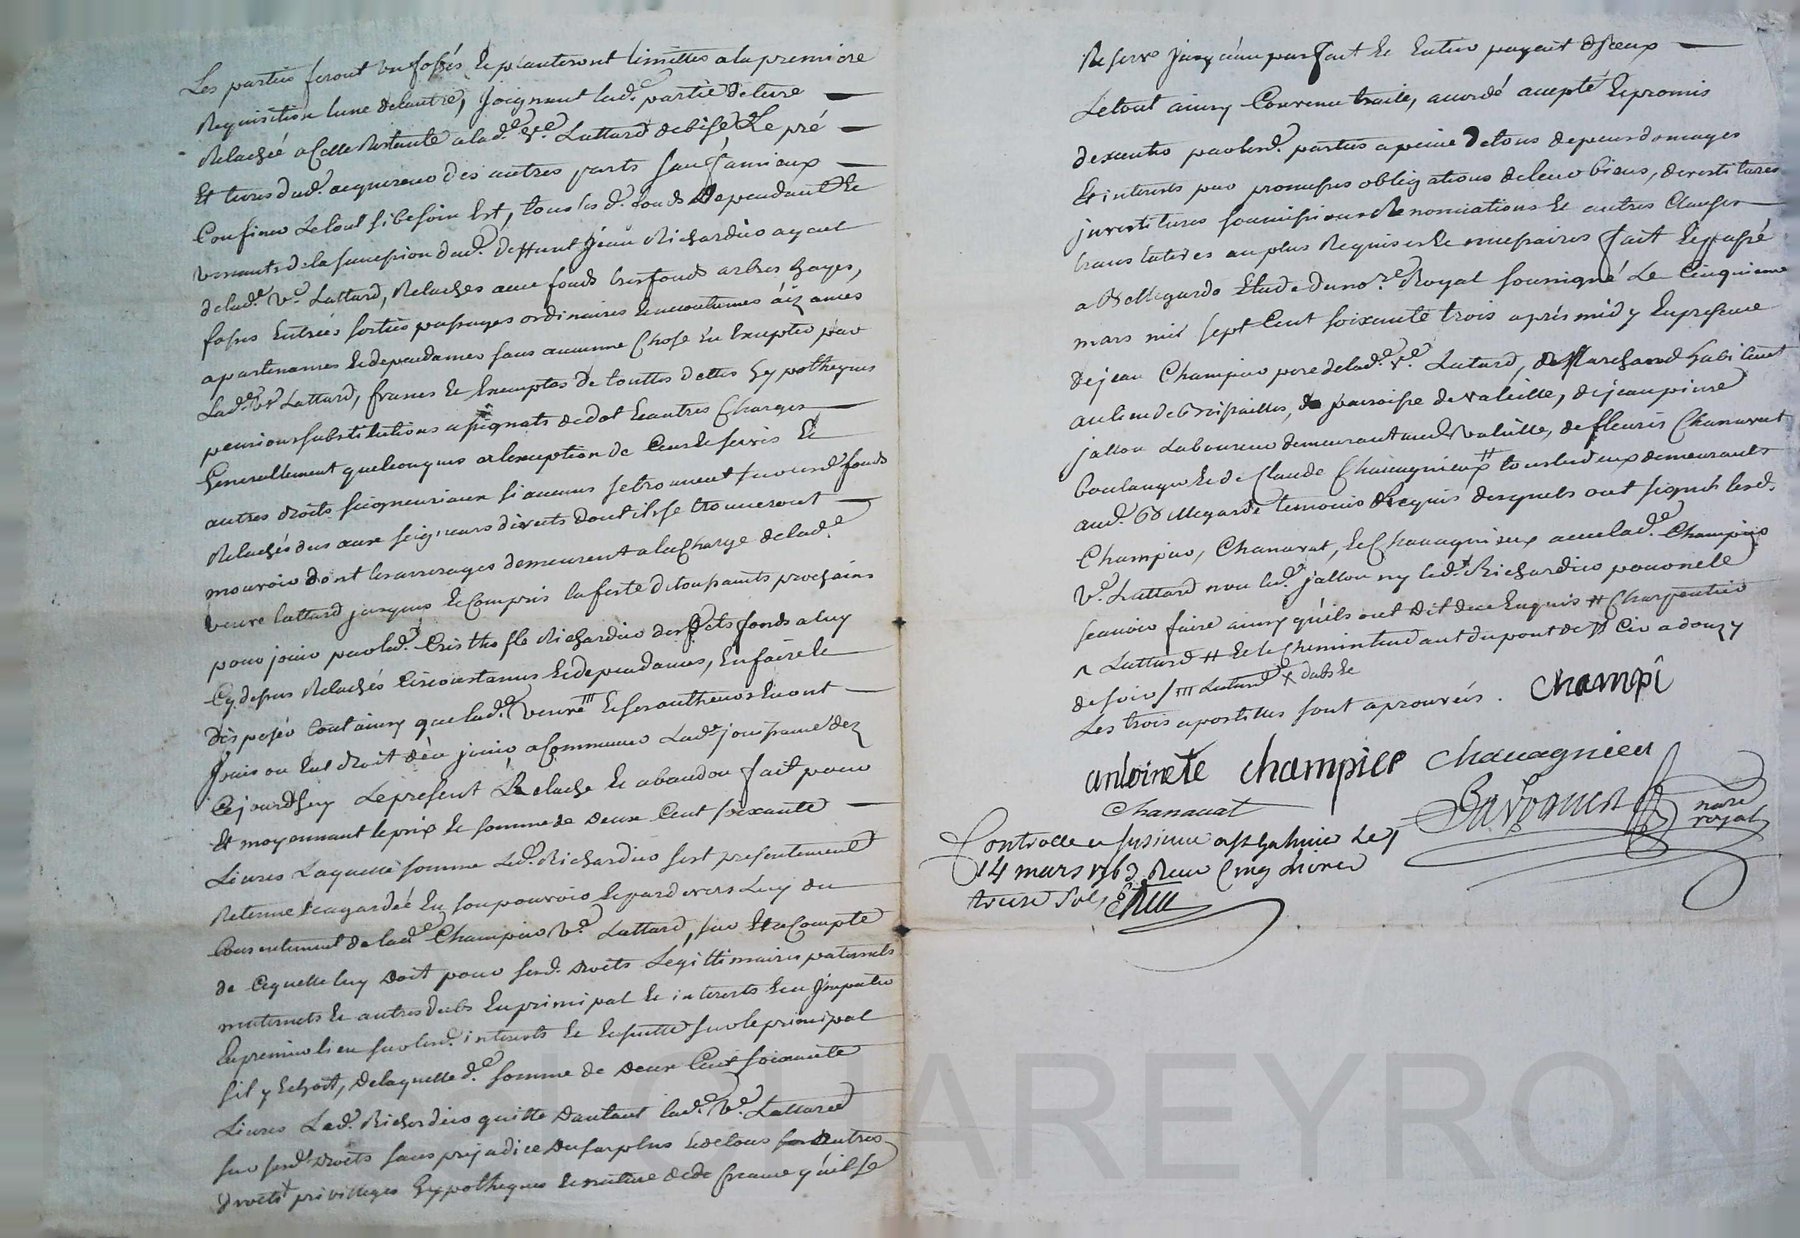 Les parties feront un fossés et planteront limittes a la premiere
Requisition lune de lautre, joignant lad.e partie de terre
Relachée a Celle Restante a lad.e v.e Lattard de bise Le pré
Et terres dud. acquereur des autres parts sauf a mieux
Confiner Le tout si besoin Est, tous les d. fonds Dependant et
venants de la succession dud. deffunt jean Richardier ayeul
de lad.e v.e Lattard, Relachés avec fonds tresfonds arbres hayes,
fosses Entrées sorties passages ordinaires et accoutumés aizances
apartenances et dependances sans aucunne Chose En Excepter par
Lad.e v.e Lattard, francs et Exemptes de touttes dettes hypotheques
pensions substitutions assignats de dot et autres Charges
Generallement quelconques a lexception de Cens et servis et
autres droits seigneuriaux si aucuns se trouvent sur lesd. fonds
Relachés dus aux seigneurs directs dont ils se trouveront
mouvoir dont les arrerages demeurent a la Charge de lad.e
veuve lattard jusques et Compris la feste de toussaints prochains
pour jouir par led. Cristhofle Richardier desdits fonds a luy
Cy dessus Relachés Circonstances et dependances, En faire et
disposér tout ainsy que lad.e veuve et ses autheurs En ont
joui ou Eut droit den jouir, a Commencer Lad.e jouissance dez
Cejourdhuy Le present Relache et abandon fait pour
Et moyennant le prix et somme de deux Cent soixante
Livres Laquelle somme Led. Richardier sest presentement
Retenue et agardée En son pouvoir et pardevers Luy du
Consentement de lad.e Champier v.e Lattard, sur Et a Compte
de Cequelle luy doit pour sesd. droits Legittimaires paternels
maternels et autres dubs En principal et interets et en jmputer
En premier lieu sur lesd. interets et Ensuitte sur le principal
sil y Echoit, de laquelle d.e somme de deux Cent soixante
Livres Led. Richardier quitte dautant lad.e v.e Lattard
sur sesd. droits sans prejudice du surplus et de tous autres
droits privilleges hypotheques et nature de de Creance quil se
Reserve jusquau parfait et Entier payait diceux
Le tout ainsy Convenu traité, accordé accepté et promis
dexecuter par lesd. parties a peine de tous depens domages
Et interets par promesses obligations de leur biens, devestitures
jnvestitures soumissions Renonciations et autres Clauses
translatives au plus Requises et necessaires fait et passé
a Bellegarde Etude du no.re Royal soussigné Le Cinquieme
mars mil sept Cent soixante trois aprés midy En presence
de jean Champier pere de lad.e v.e Latard, Marchand habitant
au lieu de paroisse de valeille, de jean pierre
jallon Laboureur demeurant aud. valeille, de fleuris Chanavat
boulanger et de Claude Chavagnieux # tous les deux demeurants
aud. Bellegarde temoins Requis desquels ont signés lesd.
Champier, Chanavat, et Chavagnieux avec lad.e Champier
V.e Lattard non led. jallon ny led. Richardier pour ne le
scavoir faire ainsy quils ont dit de ce Enquis # Charpentier
^ Lattard # et le Chemin tendant du pont de Civ a donzy
de soir / ııı Lattard x dubs et
Les trois apostilles sont aprouvées. Champi
antoinete champier Chavagnieu
Chanavat
nore
royal
Controlle et jnsinue a st galmier Le
14 mars 1763 Recu Cinq Livres
treize sols
CHAREYRON